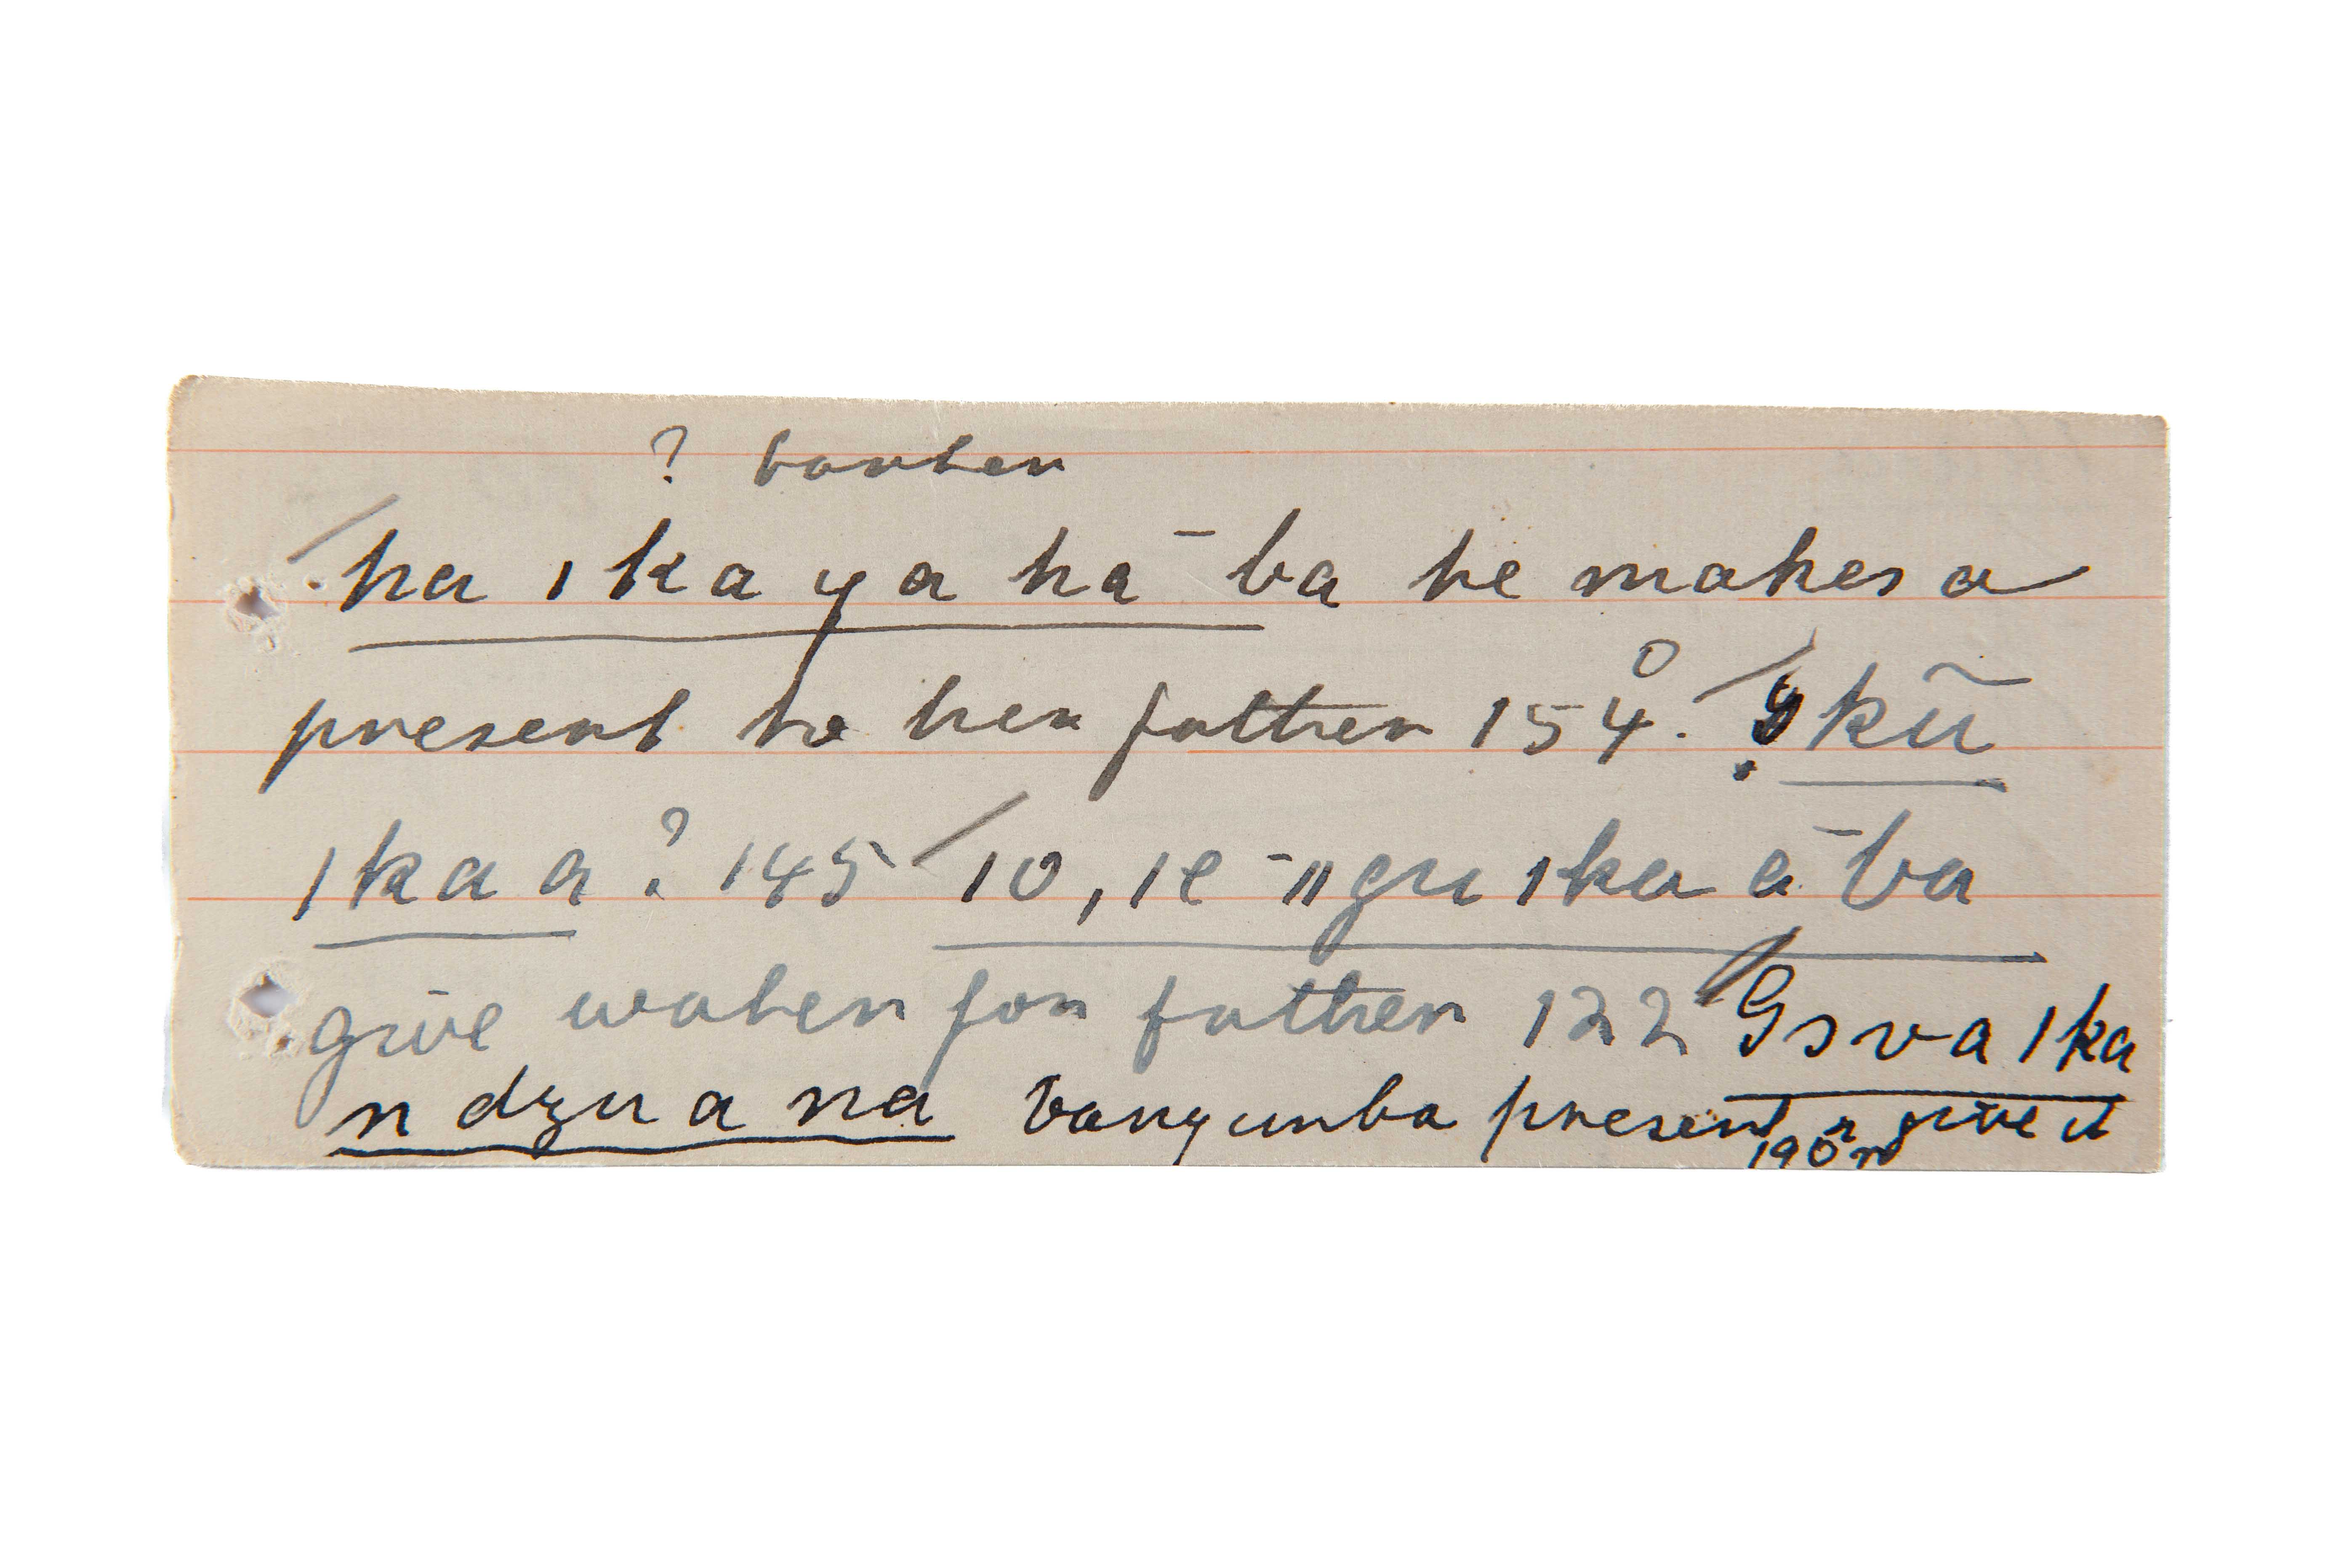 ? barter
ha ı ka ya hā ba he makes a
present to her father 154. kũ
ı ka a ? 145 ı o, ı e ıı gu ı ka ā ba
give water for father 122 G s v a ı ka
n dzu a na present give it
190